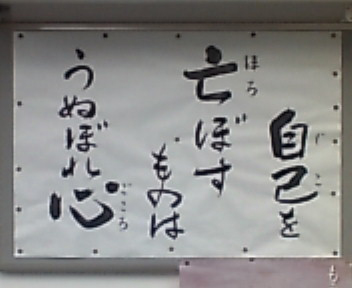 自己を
じこ
亡ぼす
ほろ
ものは
うぬぼれ心
ごころ
も